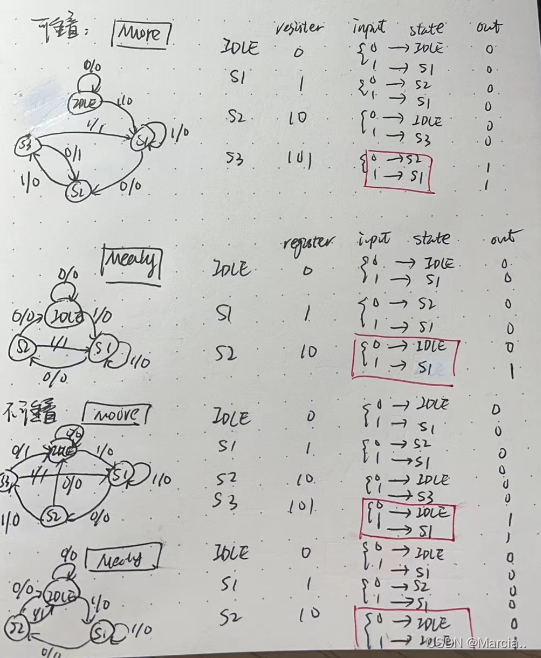 可重叠: Moore
register input state out
IDLE 0 { 0 → IDLE 0
1 → S1 0
S1 1 { 0 → S2 0
1 → S1 0
S2 10 { 0 → IDLE 0
1 → S3 0
S3 101 { 0 → S2 1
1 → S1 1
0/0
IDLE 1/0
S3 1/1 S1 1/0
0/1
1/0 S2 0/0
Mealy
register input state out
IDLE 0 { 0 → IDLE 0
1 → S1 0
S1 1 { 0 → S2 0
1 → S1 0
S2 10 { 0 → IDLE 0
1 → S1 1
0/0
0/0 IDLE 1/0
S2 1/1 S1 1/0
0/0
不可重叠 moore
IDLE 0 { 0 → IDLE 0
1 → S1 0
S1 1 { 0 → S2 0
1 → S1 0
S2 10 { 0 → IDLE 0
1 → S3 0
S3 101 { 0 → IDLE 1
1 → S1 1
0/0
0/1 IDLE 1/0
S3 1/1 0/0 S1 1/0
1/0 S2 0/0
Mealy
IDLE 0 { 0 → IDLE 0
1 → S1 0
S1 1 { 0 → S2 0
1 → S1 0
S2 10 { 0 → IDLE 0
1 → IDLE
0/0
0/0 IDLE 1/0
S2 1/1 S1 1/0
0/0
CSDN @Marcia..